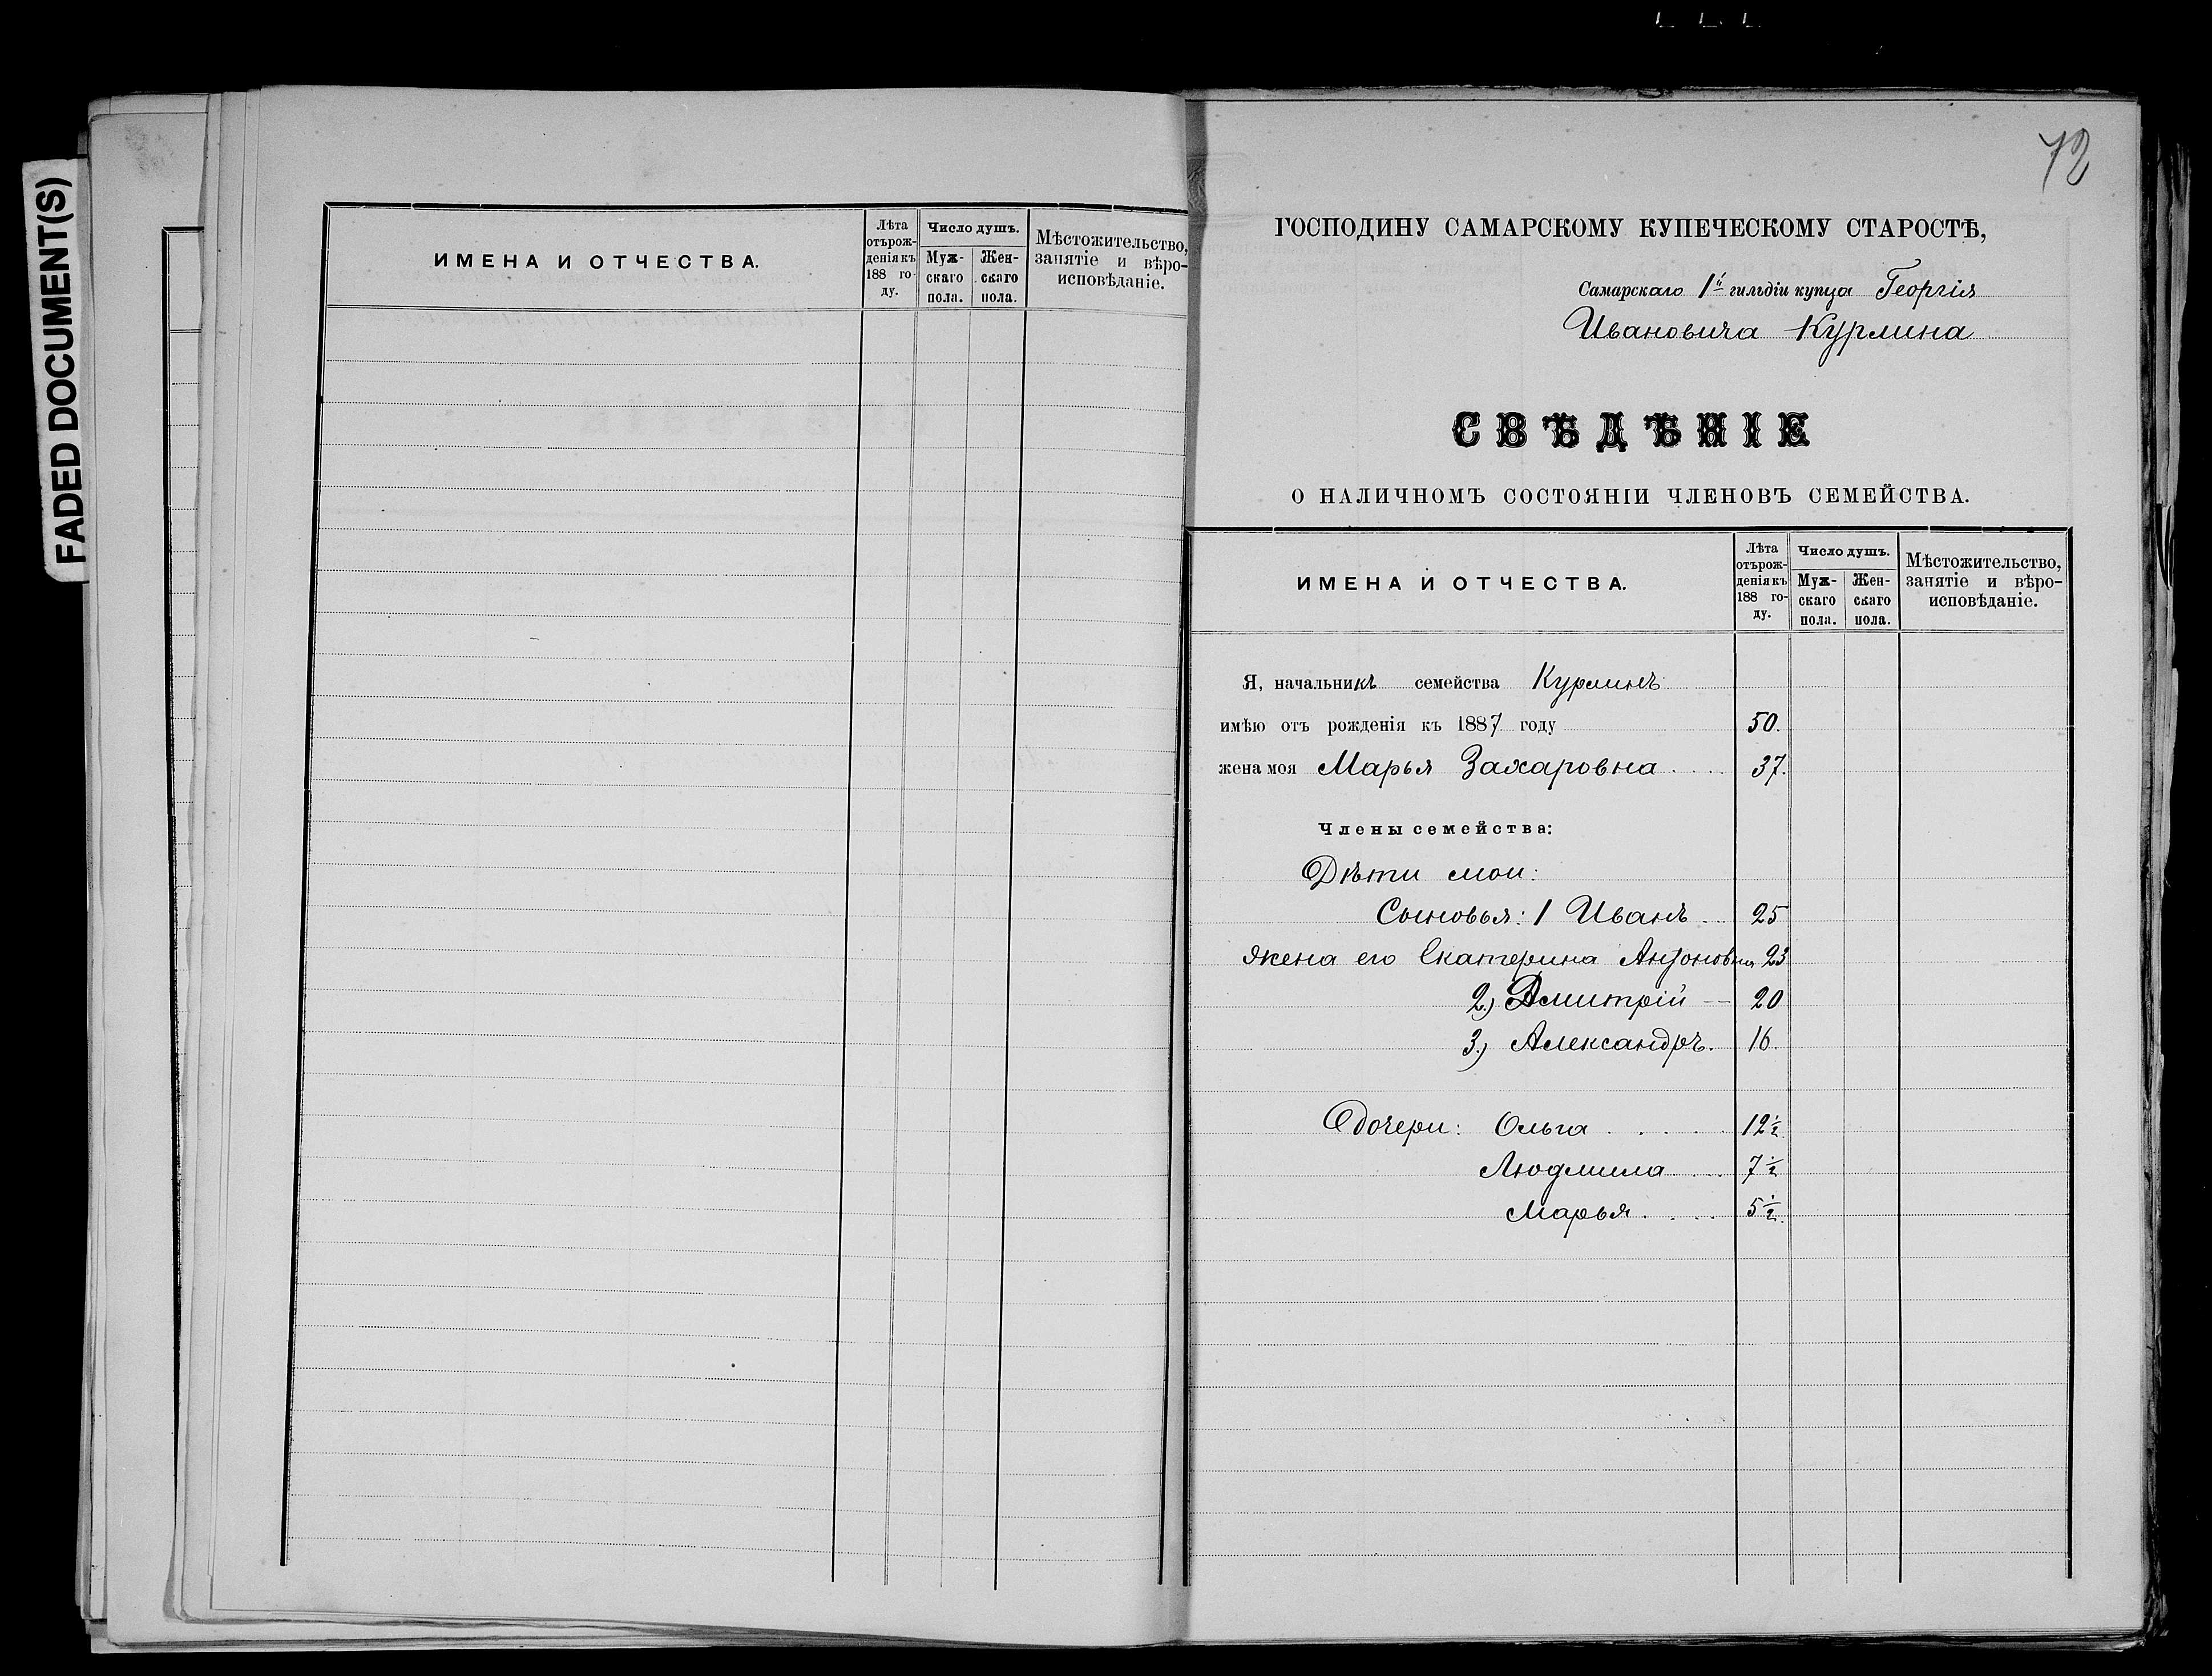 FADED DOCUMENT(S)
ИМЕНА И ОТЧЕСТВА.
Лѣта
отърож-
денія къ
188 го-
ду.
Число душъ.
Муж-
скаго
пола.
Жен-
скаго
пола.
Мѣстожительство,
занятіе и вѣро-
исповѣданіе.
72
ГОСПОДИНУ САМАРСКОМУ КУПЕЧЕСКОМУ СТАРОСТѢ,
Самарскаго 1й гильдіи купца Георгія
Ивановича Курлина
СВѢДѢНІЕ
О НАЛИЧНОМЪ СОСТОЯНІИ ЧЛЕНОВЪ СЕМЕЙСТВА.
ИМЕНА И ОТЧЕСТВА.
Лѣта
отърож-
денія къ
188 го-
ду.
Число душъ.
Муж-
скаго
пола.
Жен-
скаго
пола.
Мѣстожительство,
занятіе и вѣро-
исповѣданіе.
Я, начальникъ семейства Курлинъ
имѣю отъ рожденія къ 1887 году 50.
жена моя Марья Захаровна 37.
Члены семейства:
Дѣти мои:
Сыновья: 1 Иванъ 25
Жена его Екатерина Антоновна 23
2.) Дмитрій — 20
3.) Александръ. 16.
Дочери: Ольга 12½
Людмила 7½
Марья 5½